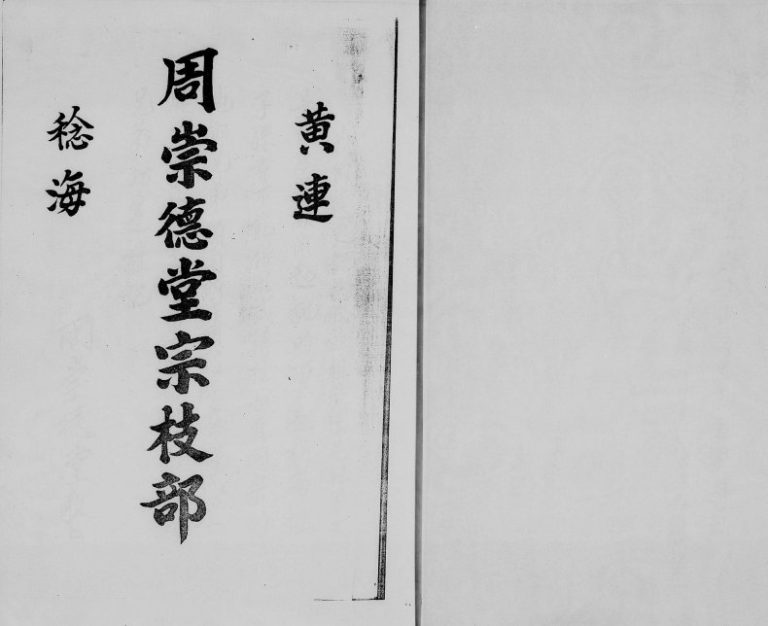 黄連
周崇德堂宗枝部
稔海